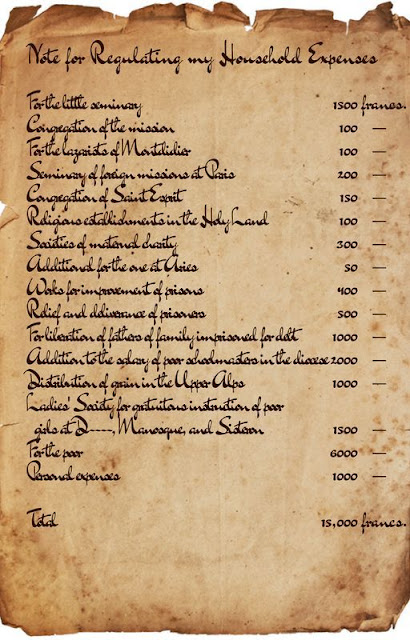 Note for Regulating my Household Expenses
For the little seminary 1500 francs.
Congregation of the mission 100 —
For the lazarists of Montdidier 100 —
Seminary of foreign missions at Paris 200 —
Congregation of Saint Esprit 150 —
Religious establishments in the Holy Land 100 —
Societies of maternal charity 300 —
Additional for the one at Aries 50 —
Works for improvement of prisons 400 —
Relief and deliverance of prisoners 500 —
For liberation of fathers of family imprisoned for debt 1000 —
Addition to the salary of poor schoolmasters in the diocese 2000 —
Distribution of grain in the Upper Alps 1000 —
Ladies' Society for gratuitous instruction of poor
girls at D-----, Manosque, and Sisteron 1500 —
For the poor 6000 —
Personal expenses 1000 —
Total 15,000 francs.